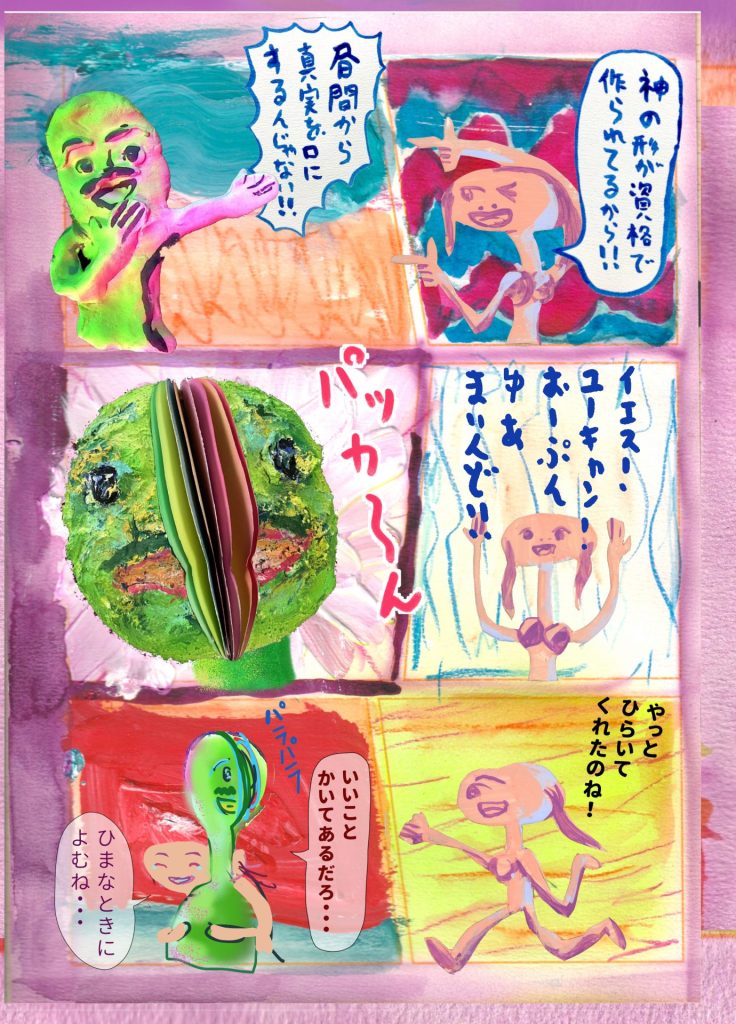 神の形が資格で
作られてるから!!
昼間から
真実を口に
するんじゃない!!
イエスー、
ユーキャン!
おーぷん
ゆあ
まいんどぃ!
パッカ〜ん
やっと
ひらいて
くれたのね!
パラパラ
いいこと
かいてあるだろ・・・
ひまなときに
よむね・・・